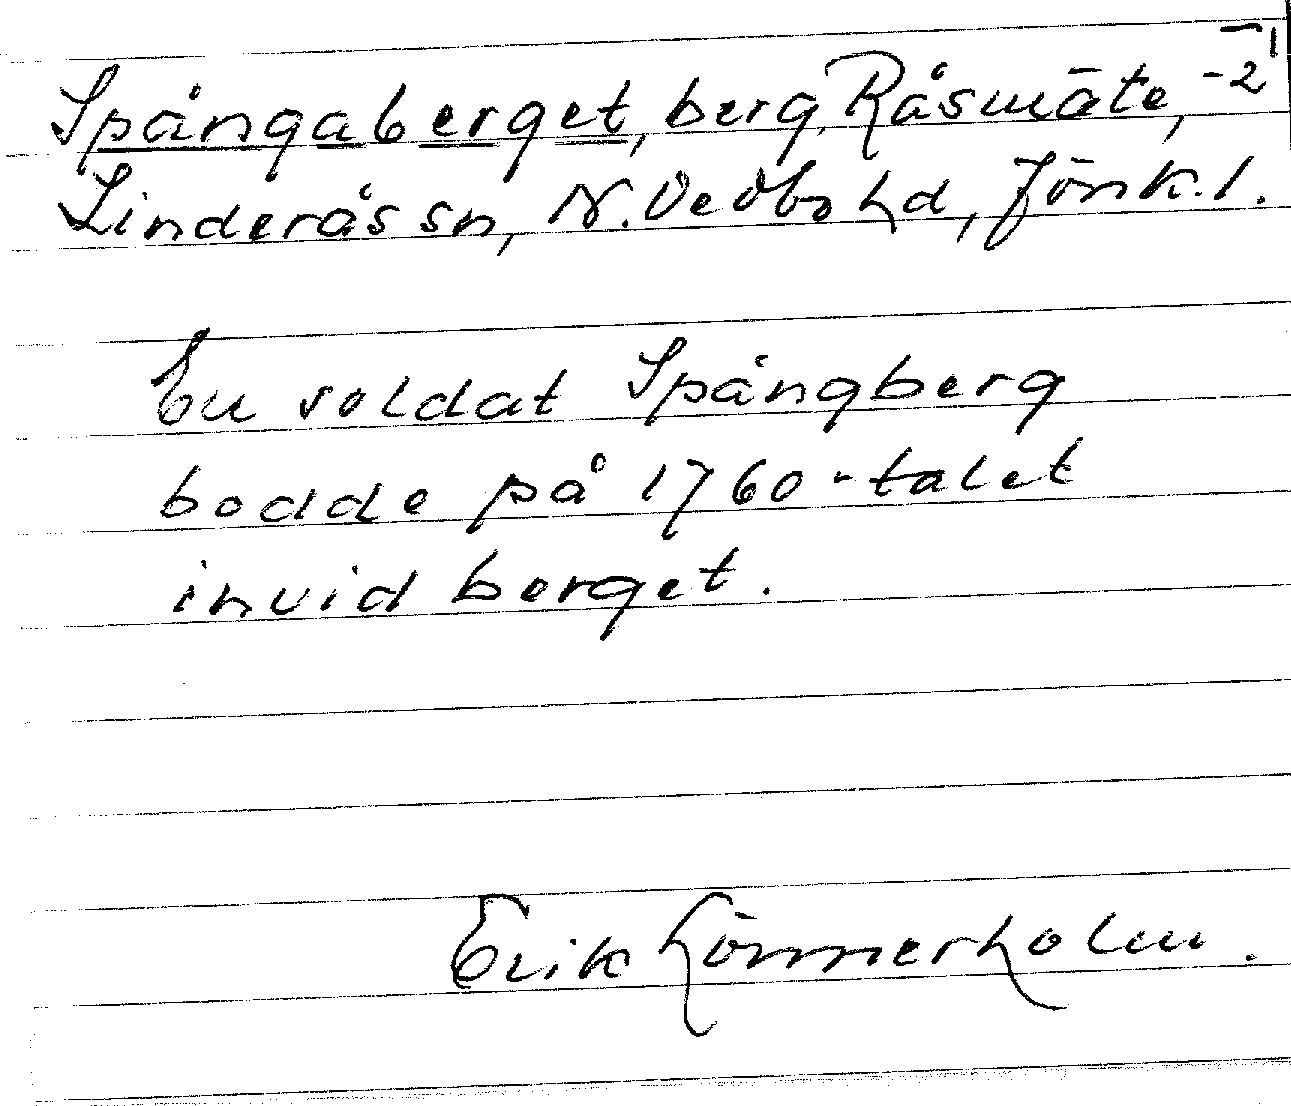 Spångaberget, berg, Råsmäte, -2 1
Linderås sn, N. Vedbo hd, Jönk. l.
En soldat Spångberg
bodde på 1760-talet
invid berget.
Erik Lönnerholm.